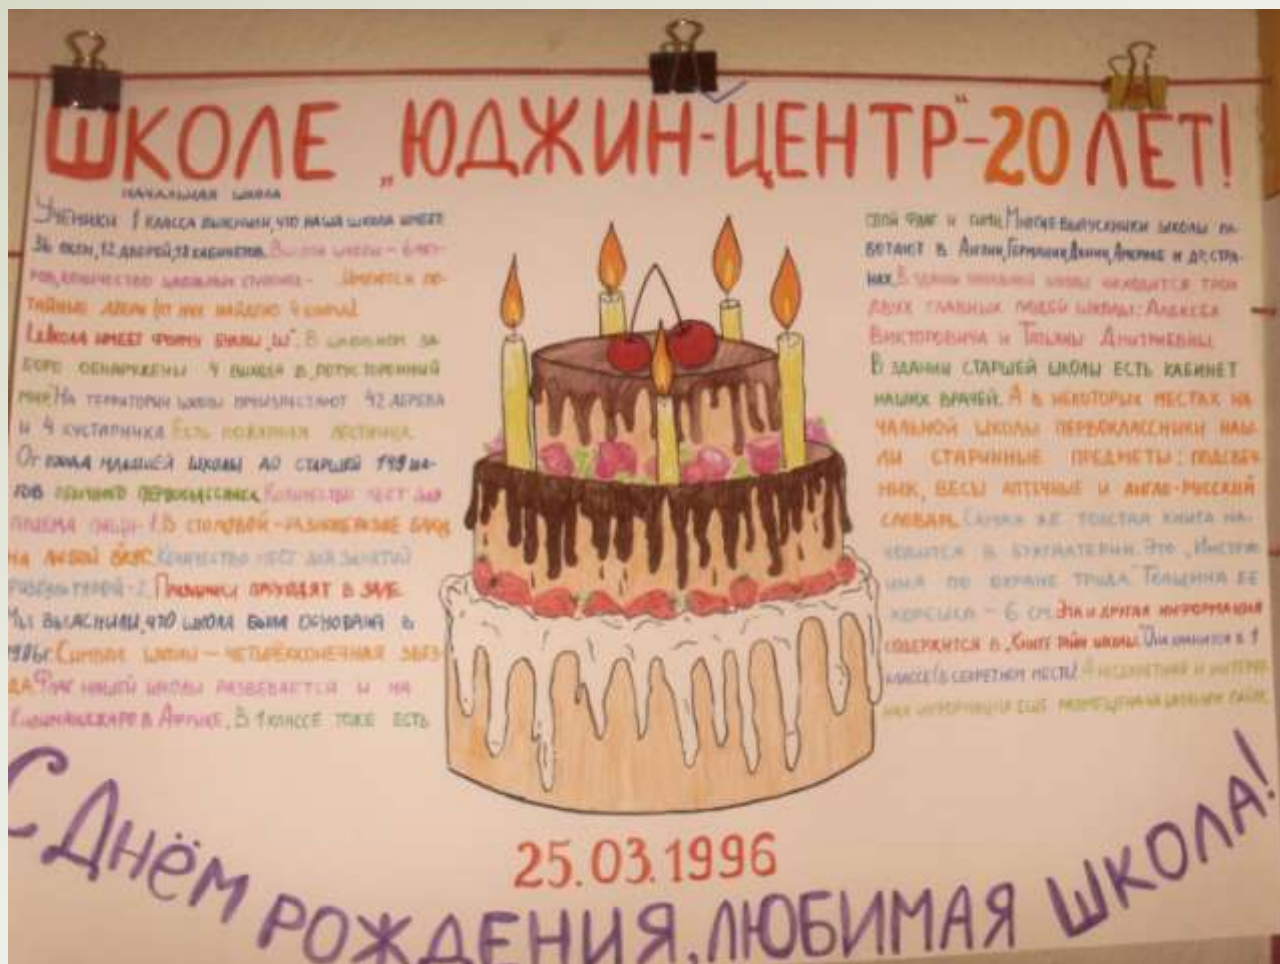 ШКОЛЕ „ЮДЖИН-ЦЕНТР“-20 ЛЕТ!
НАЧАЛЬНАЯ ШКОЛА
УЧЕНИКИ 1 КЛАССА ВЫЯСНИЛИ, ЧТО НАША ШКОЛА ИМЕЕТ
36 ОКОН, 12 ДВЕРЕЙ, 13 КАБИНЕТОВ. ВЫСОТА ШКОЛЫ – 6 МЕТ-
РОВ, КОЛИЧЕСТВО ШКОЛЬНЫХ СТУПЕНЕК - ИМЕЮТСЯ ПО-
ТАЙНЫЕ ДВЕРИ (ОТ НИХ НАЙДЕНО 4 КЛЮЧА).
ШКОЛА ИМЕЕТ ФОРМУ БУКВЫ „Ш“. В ШКОЛЬНОМ ЗА-
БОРЕ ОБНАРУЖЕНЫ 4 ВЫХОДА В „ПОТУСТОРОННИЙ
МИР“ НА ТЕРРИТОРИИ ШКОЛЫ ПРОИЗРАСТАЮТ 42 ДЕРЕВА
И 4 КУСТАРНИКА ЕСТЬ ПОЖАРНАЯ ЛЕСТНИЦА.
ОТ МЛАДШЕЙ ШКОЛЫ ДО СТАРШЕЙ 149 ША-
ГОВ ОБЫЧНОГО ПЕРВОКЛАССНИКА. КОЛИЧЕСТВО МЕСТ ДЛЯ
ПРИЁМА ПИЩИ - 1. В СТОЛОВОЙ – РАЗНООБРАЗИЕ БЛЮД
НА ЛЮБОЙ ВКУС. КОЛИЧЕСТВО МЕСТ ДЛЯ ЗАНЯТИЙ
ФИЗКУЛЬТУРОЙ - 2. ПРАЗДНИКИ ПРОХОДЯТ В ЗАЛЕ.
МЫ ВЫЯСНИЛИ, ЧТО ШКОЛА БЫЛА ОСНОВАНА В
СИМВОЛ ШКОЛЫ – ЧЕТЫРЁХКОНЕЧНАЯ ЗВЕЗ-
ДА. ФЛАГ НАШЕЙ ШКОЛЫ РАЗВЕВАЕТСЯ И НА
КИЛИМАНДЖАРО В АФРИКЕ. В 1 КЛАССЕ ТОЖЕ ЕСТЬ
СВОЙ ФЛАГ И ГИМН. МНОГИЕ ВЫПУСКНИКИ ШКОЛЫ РА-
БОТАЮТ В АНГЛИИ, ГЕРМАНИИ, ДАНИИ, АМЕРИКЕ И ДР. СТРА-
НАХ. В ЗДАНИИ НАЧАЛЬНОЙ ШКОЛЫ НАХОДИТСЯ ТРОН
ДВУХ ГЛАВНЫХ ЛЮДЕЙ ШКОЛЫ: АЛЕКСЕЯ
ВИКТОРОВИЧА И ТАТЬЯНЫ ДМИТРИЕВНЫ.
В ЗДАНИИ СТАРШЕЙ ШКОЛЫ ЕСТЬ КАБИНЕТ
НАШИХ ВРАЧЕЙ. А В НЕКОТОРЫХ МЕСТАХ НА-
ЧАЛЬНОЙ ШКОЛЫ ПЕРВОКЛАССНИКИ НАШ-
ЛИ СТАРИННЫЕ ПРЕДМЕТЫ: ПОДСВЕЧ-
НИК, ВЕСЫ АПТЕЧНЫЕ И АНГЛО-РУССКИЙ
СЛОВАРЬ. САМАЯ ЖЕ ТОЛСТАЯ КНИГА НА-
ХОДИТСЯ В БУХГАЛТЕРИИ. ЭТО „ИНСТРУК-
ЦИЯ ПО ОХРАНЕ ТРУДА“ ТОЛЩИНА ЕЁ
КОРЕШКА – 6 СМ. ЭТА И ДРУГАЯ ИНФОРМАЦИЯ
СОДЕРЖИТСЯ В „КНИГЕ ТАЙН ШКОЛЫ“. ОНА ХРАНИТСЯ В 1
КЛАССЕ (В СЕКРЕТНОМ МЕСТЕ)! А НЕСЕКРЕТНАЯ И
ИНФОРМАЦИЯ ЕЩЁ РАЗМЕЩЕНА НА ШКОЛЬНОМ САЙТЕ.
25.03.1996
С ДНЁМ РОЖДЕНИЯ, ЛЮБИМАЯ ШКОЛА!